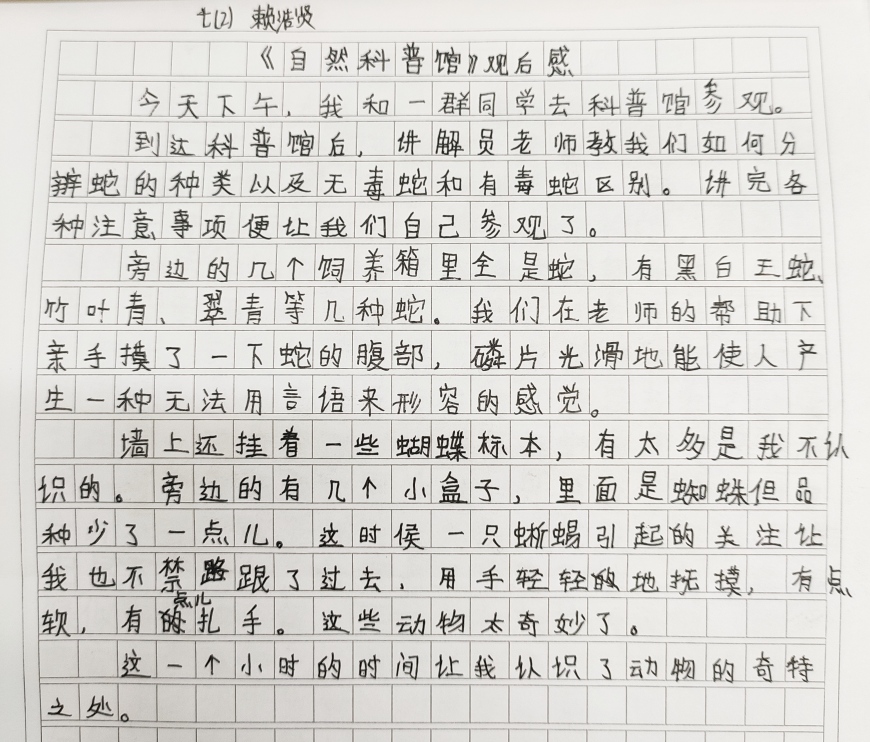 七(2) 赖浩贤
《自然科普馆》观后感
今天下午，我和一群同学去科普馆参观。
到达科普馆后，讲解员老师教我们如何分
辨蛇的种类以及无毒蛇和有毒蛇区别。讲完各
种注意事项便让我们自己参观了。
旁边的几个饲养箱里全是蛇，有黑白王蛇、
竹叶青、翠青等几种蛇。我们在老师的帮助下
亲手摸了一下蛇的腹部，磷片光滑地能使人产
生一种无法用言语来形容的感觉。
墙上还挂着一些蝴蝶标本，有太多是我不认
识的。旁边的有几个小盒子，里面是蜘蛛但品
种少了一点儿。这时候一只蜥蜴引起的关注让
我也不禁跟了过去，用手轻轻地抚摸，有点
软，有点儿扎手。这些动物太奇妙了。
这一个小时的时间让我认识了动物的奇特
之处。